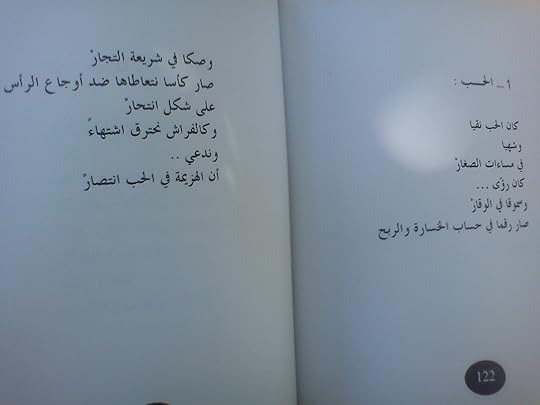 1 _ الحب :
كان الحب نقيا
وشهيا
في مساءات الصغارْ
كان رؤى ...
وسموقا في الوقارْ
صار رقما في حساب الخسارة والربح
122
وصكا في شريعة التجارْ
صار كأسا نتعاطاها ضد أوجاع الرأس
على شكل انتحارْ
وكالفراش نحترق اشتهاءً
وندعي ..
أن الهزيمة في الحب انتصارْ